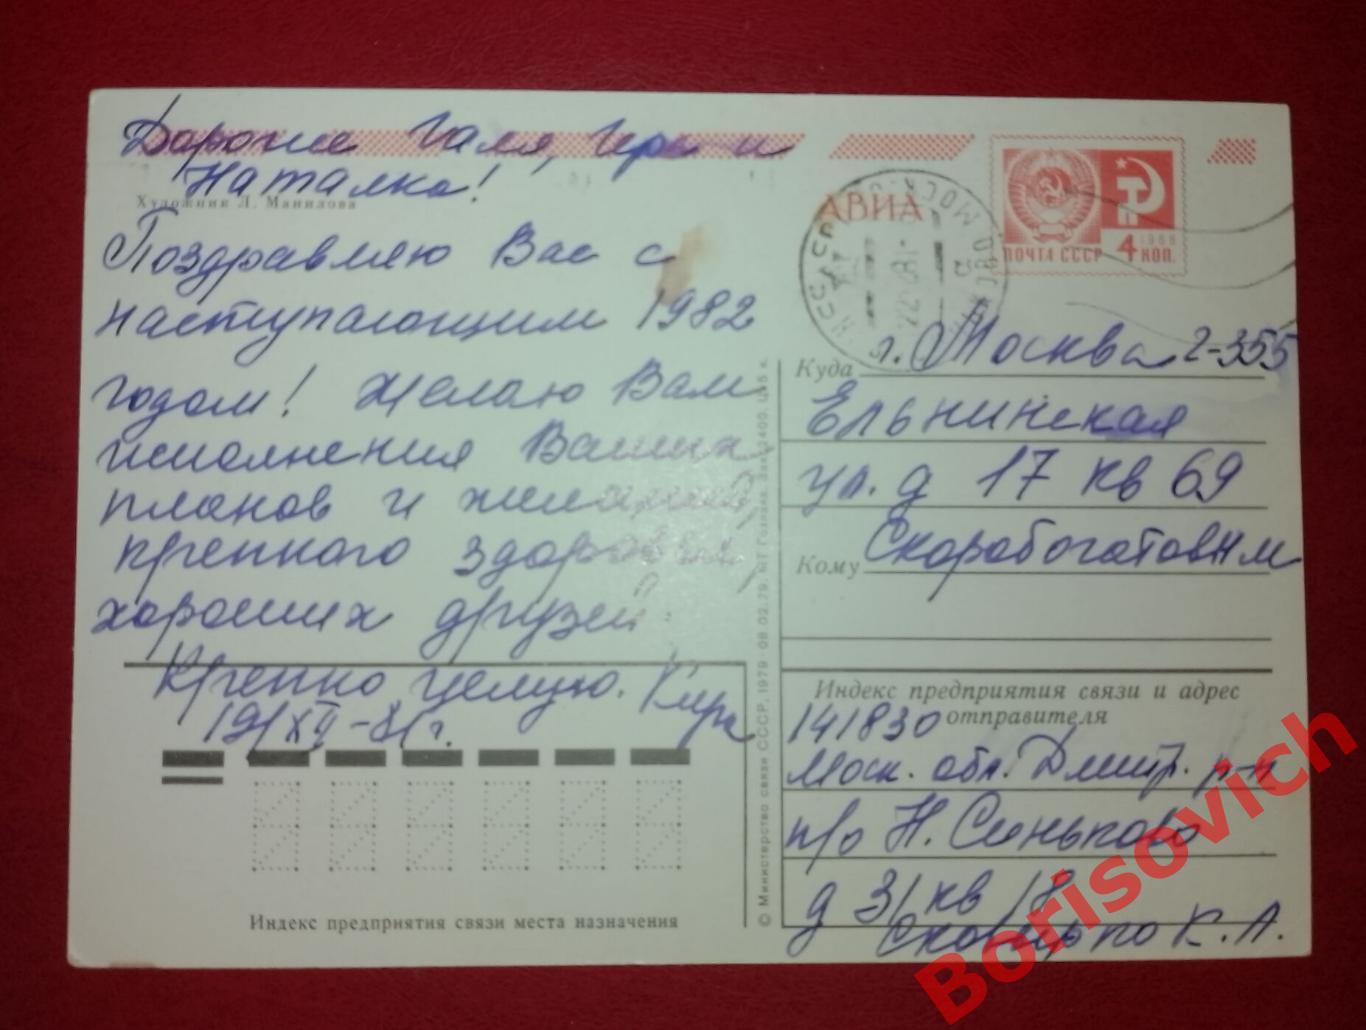 Дорогие Галя, Гера и
Наталка!
Художник Л. Манилова
Поздравляю Вас с
наступающим 1982
годом! Желаю Вам
исполнения Ваших
планов и желаний,
крепкого здоровья,
хороших друзей.
Крепко целую. Кира
19/XII-81г.
Индекс предприятия связи места назначения
© Министерство связи СССР, 1979 08.02.79. МТ Гознака. Зак. 2400. Ц. 5 к.
АВИА
ПОЧТА СССР 4 КОП.
1966
МОСКВА
Куда г. Москва Г-355
Ельнинская
ул. д 17 кв 69
Кому Скоробогатовым
Индекс предприятия связи и адрес
отправителя
141830
Моск. обл. Дмитр. р-н
п/о Н. Синьково
д 31 кв 18
К. А.
Borisovich